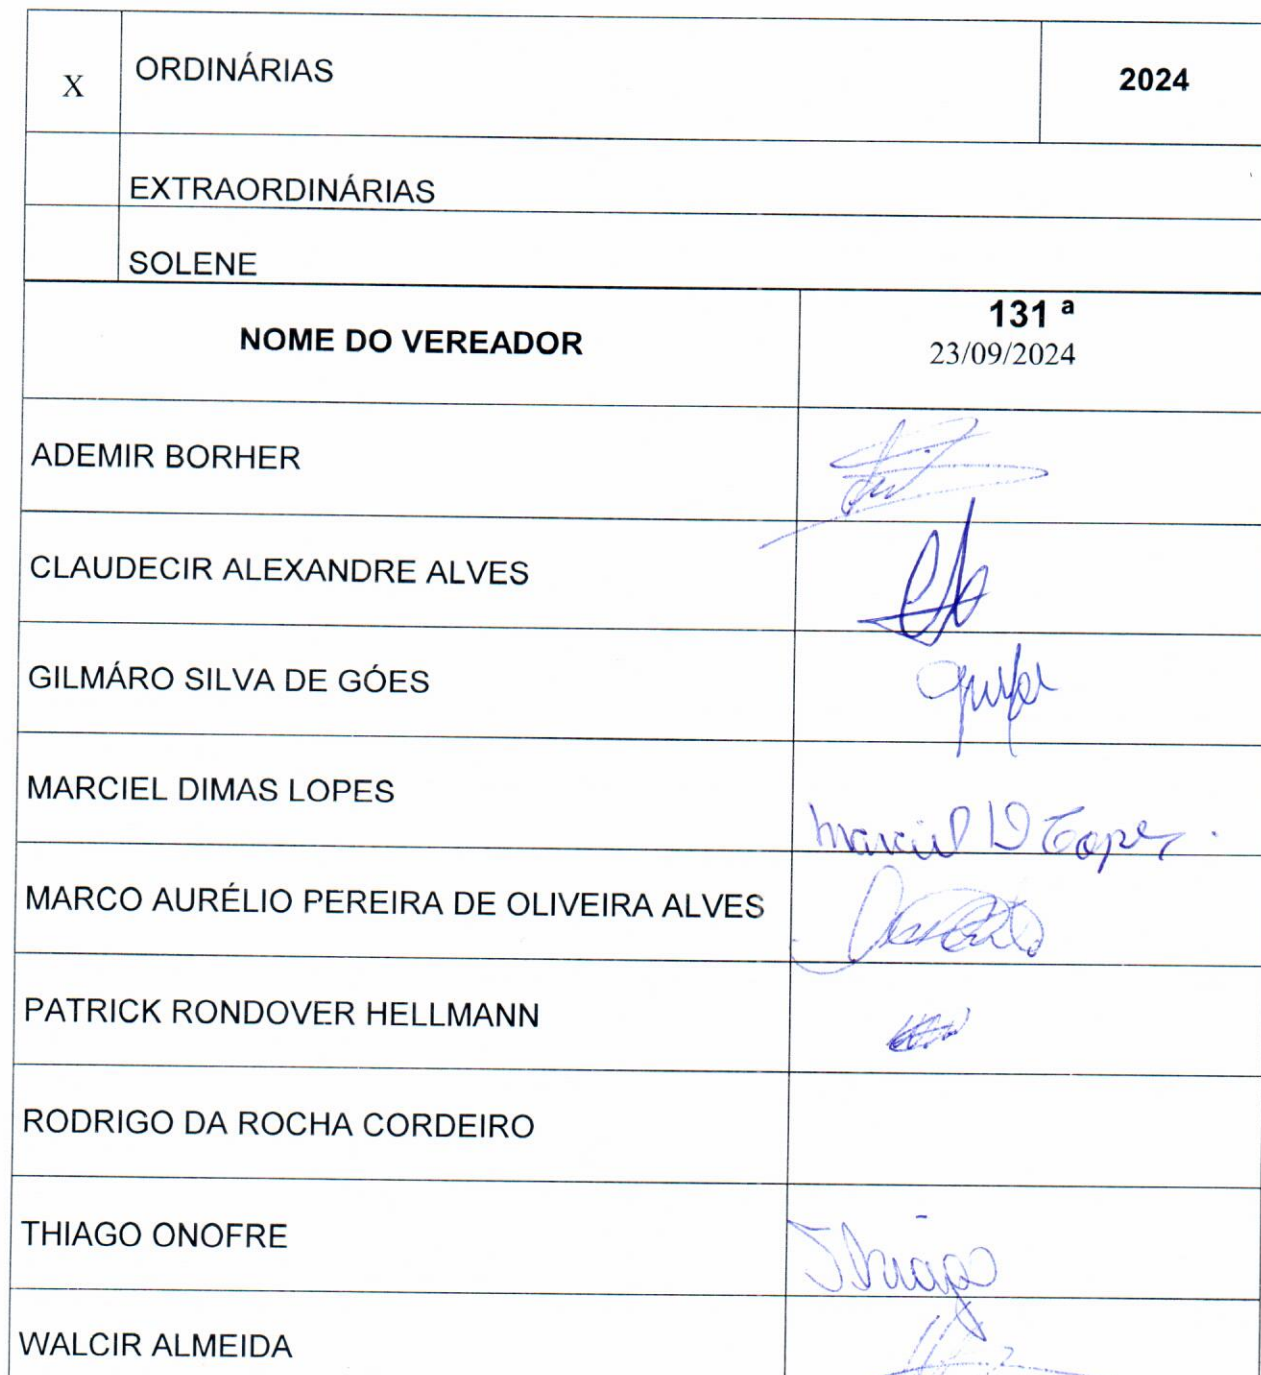 X ORDINÁRIAS 2024
EXTRAORDINÁRIAS
SOLENE
NOME DO VEREADOR 131 ª
23/09/2024
ADEMIR BORHER
CLAUDECIR ALEXANDRE ALVES
GILMÁRO SILVA DE GÓES
MARCIEL DIMAS LOPES Marciel D Lopes.
MARCO AURÉLIO PEREIRA DE OLIVEIRA ALVES
PATRICK RONDOVER HELLMANN
RODRIGO DA ROCHA CORDEIRO
THIAGO ONOFRE Thiago
WALCIR ALMEIDA